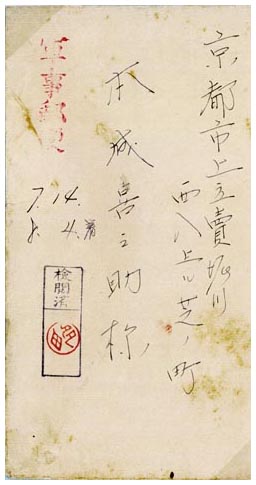 京都市上立賣堀川
西入上ル芝ノ町
本城喜之助様
軍事郵便
7.14.
8.4.着
検閲済